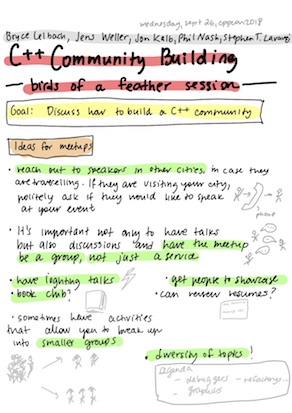 wednesday, sept 26, cppcon 2018
Bryce Lelbach, Jens Weller, Jon Kalb, Phil Nash, Stephen T. Lavavej
C++ Community Building
birds of a feather session
Goal: Discuss how to build a C++ community
Ideas for meetups
• reach out to speakers in other cities, in case they
are travelling. If they are visiting your city,
politely ask if they would like to speak
at your event
phone
• It's important not only to have talks
but also discussions and have the meetup
be a group, not just a service
• have lighting talks
• book club?
• get people to showcase
• can review resumes?
• sometimes have activities
that allow you to break up
into smaller groups
• diversity of topics!
agenda
- debuggers - refactoring...
- graphics